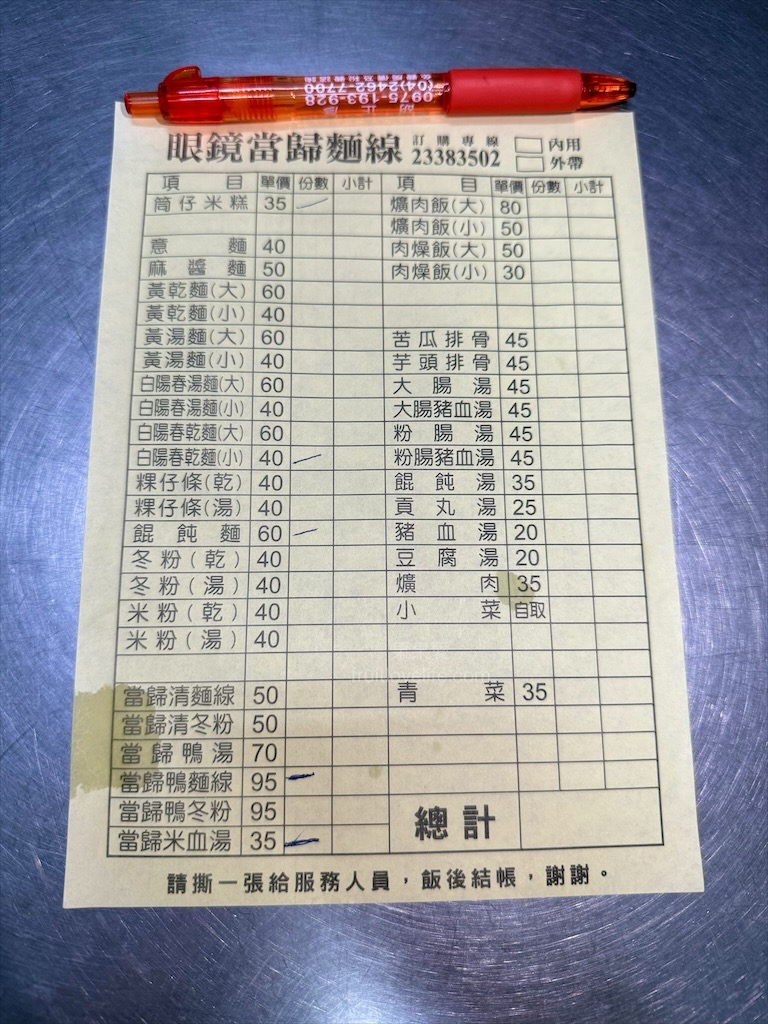 0975-193-928
(04)2462-7700
眼鏡當歸麵線 訂購專線 23383502 內用
外帶
項目 單價 份數 小計 項目 單價 份數 小計
筒仔米糕 35 爌肉飯(大) 80
爌肉飯(小) 50
意麵 40 肉燥飯(大) 50
麻醬麵 50 肉燥飯(小) 30
黃乾麵(大) 60
黃乾麵(小) 40
黃湯麵(大) 60 苦瓜排骨 45
黃湯麵(小) 40 芋頭排骨 45
白陽春湯麵(大) 60 大腸湯 45
白陽春湯麵(小) 40 大腸豬血湯 45
白陽春乾麵(大) 60 粉腸湯 45
白陽春乾麵(小) 40 粉腸豬血湯 45
粿仔條(乾) 40 餛飩湯 35
粿仔條(湯) 40 貢丸湯 25
餛飩麵 60 豬血湯 20
冬粉(乾) 40 豆腐湯 20
冬粉(湯) 40 爌肉 35
米粉(乾) 40 小菜 自取
米粉(湯) 40
當歸清麵線 50 青菜 35
當歸清冬粉 50
當歸鴨湯 70
當歸鴨麵線 95
當歸鴨冬粉 95 總計
當歸米血湯 35
請撕一張給服務人員，飯後結帳，謝謝。